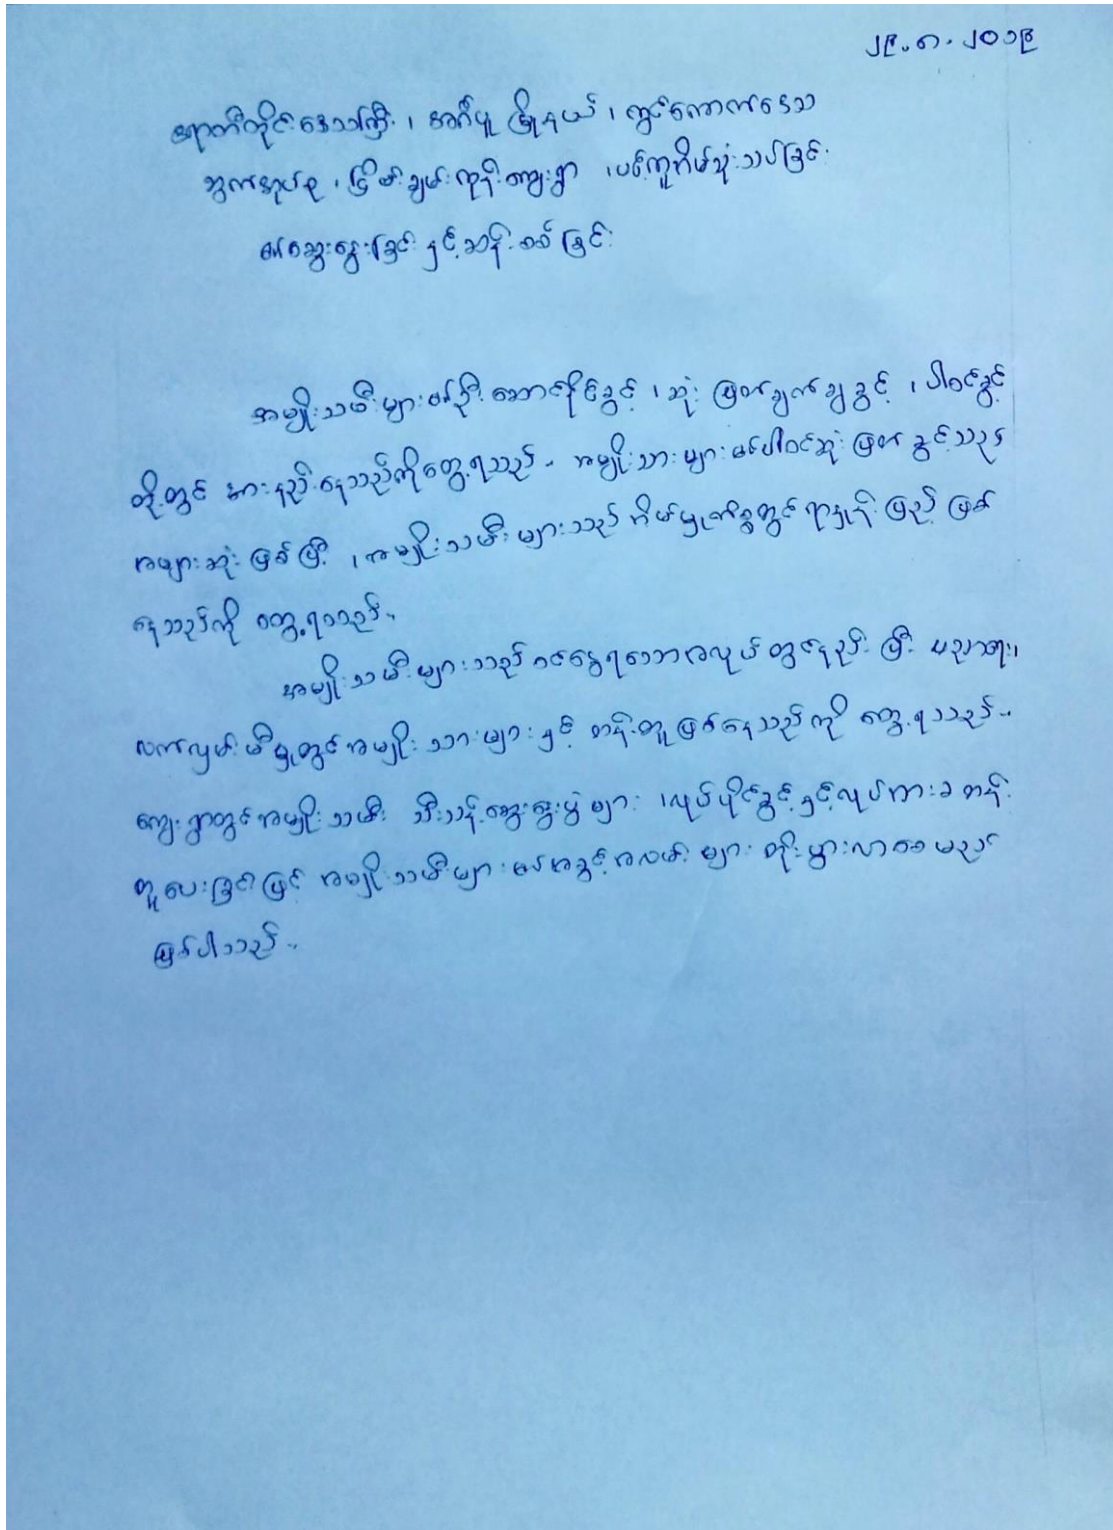 ၂၉.၈.၂၀၁၉
ဧရာဝတီတိုင်းဒေသကြီး ၊ အင်္ဂပူမြို့နယ် ၊ ကွင်းကောက်ဒေသ
ကျေးရွာအုပ်စု ၊ ငြိမ်းချမ်းကုန်းကျေးရွာ ၊ သုံးသပ်ခြင်း
ဆွေးနွေးခြင်း နှင့် ဆန်းစစ်ခြင်း
အမျိုးသမီးများ ဦးဆောင်နိုင်ခွင့် ၊ ဆုံးဖြတ်ချက်ချခွင့် ၊ ပါဝင်ခွင့်
တို့တွင် အားနည်းနေသည်ကိုတွေ့ရသည်။ အမျိုးသားများ ပါဝင်ဆုံးဖြတ်ခွင့်သည်
အများဆုံးဖြစ်ပြီး ၊ အမျိုးသမီးများသည် အိမ်မှုကိစ္စတွင် ရာနှုန်းပြည့်ဖြစ်
နေသည်ကို တွေ့ရသည်။
အမျိုးသမီးများသည် ဝင်ငွေရသောအလုပ်တွင်နည်းပြီး ပညာရေး၊
လက်လှမ်းမီမှုတွင် အမျိုးသားများနှင့် တန်းတူဖြစ်နေသည်ကို တွေ့ရသည်။
ကျေးရွာတွင် အမျိုးသမီး သီးသန့်ဆွေးနွေးပွဲများ ၊ လုပ်ပိုင်ခွင့်နှင့်လုပ်အားခ တန်း
တူပေးခြင်းဖြင့် အမျိုးသမီးများ အခွင့်အလမ်းများ တိုးပွားလာစေမည်
ဖြစ်ပါသည်။